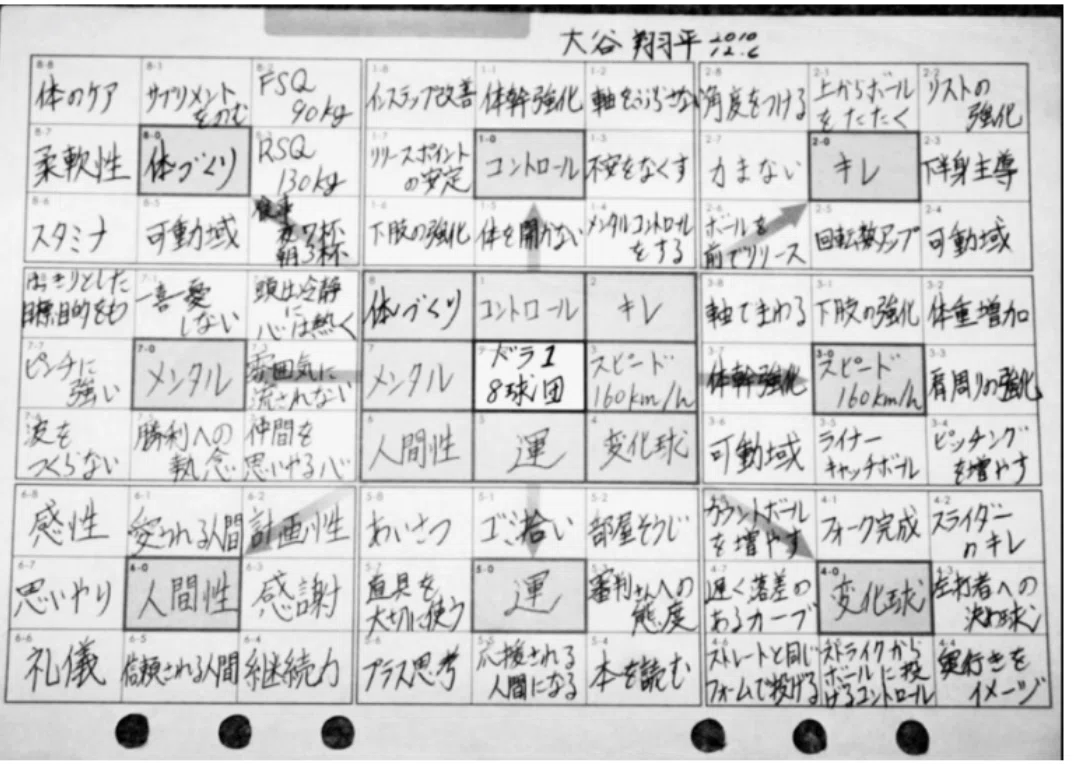 大谷 翔平 2010
12.6
8-8
体のケア
8-1
サプリメント
をのむ
8-2
FSQ
90kg
8-7
柔軟性
8-0
体づくり
RSQ
130kg
8-6
スタミナ
8-5
可動域
夜7杯
朝3杯
1-8
インステップ改善
1-1
体幹強化
1-2
軸をぶらさない
1-7
リリースポイント
の安定
1-0
コントロール
1-3
不安をなくす
1-6
下肢の強化
1-5
体を開かない
1-4
メンタルコントロール
をする
2-8
角度をつける
2-1
上からボール
をたたく
2-2
リストの
強化
2-7
力まない
2-0
キレ
2-3
下半身主導
2-6
ボールを
前でリリース
2-5
回転数アップ
2-4
可動域
はっきりとした
目標、目的をもつ
7-1
一喜一憂
しない
頭は冷静
に
心は熱く
7-7
ピンチに
強い
7-0
メンタル
7-3
雰囲気に
流されない
7-6
波を
つくらない
7-5
勝利への
執念
仲間を
思いやる心
8
体づくり
1
コントロール
2
キレ
7
メンタル
ドラ1
8球団
3
スピード
160km/h
6
人間性
5
運
4
変化球
3-8
軸でまわる
3-1
下肢の強化
3-2
体重増加
3-7
体幹強化
3-0
スピード
160km/h
3-3
肩周りの強化
3-6
可動域
3-5
ライナー
キャッチボール
3-4
ピッチング
を増やす
6-8
感性
6-1
愛される人間
6-2
計画性
6-7
思いやり
6-0
人間性
6-3
感謝
6-6
礼儀
6-5
信頼される人間
6-4
継続力
5-8
あいさつ
5-1
ゴミ拾い
5-2
部屋そうじ
5-7
道具を
大切に使う
5-0
運
5-3
審判さんへの
態度
5-6
プラス思考
5-5
応援される
人間になる
5-4
本を読む
4-8
カウントボール
を増やす
4-1
フォーク完成
4-2
スライダー
のキレ
4-7
遅く落差の
あるカーブ
4-0
変化球
4-3
左打者への
決め球
4-6
ストレートと同じ
フォームで投げる
4-5
ストライクから
ボールに投
げるコントロール
4-4
奥行きを
イメージ